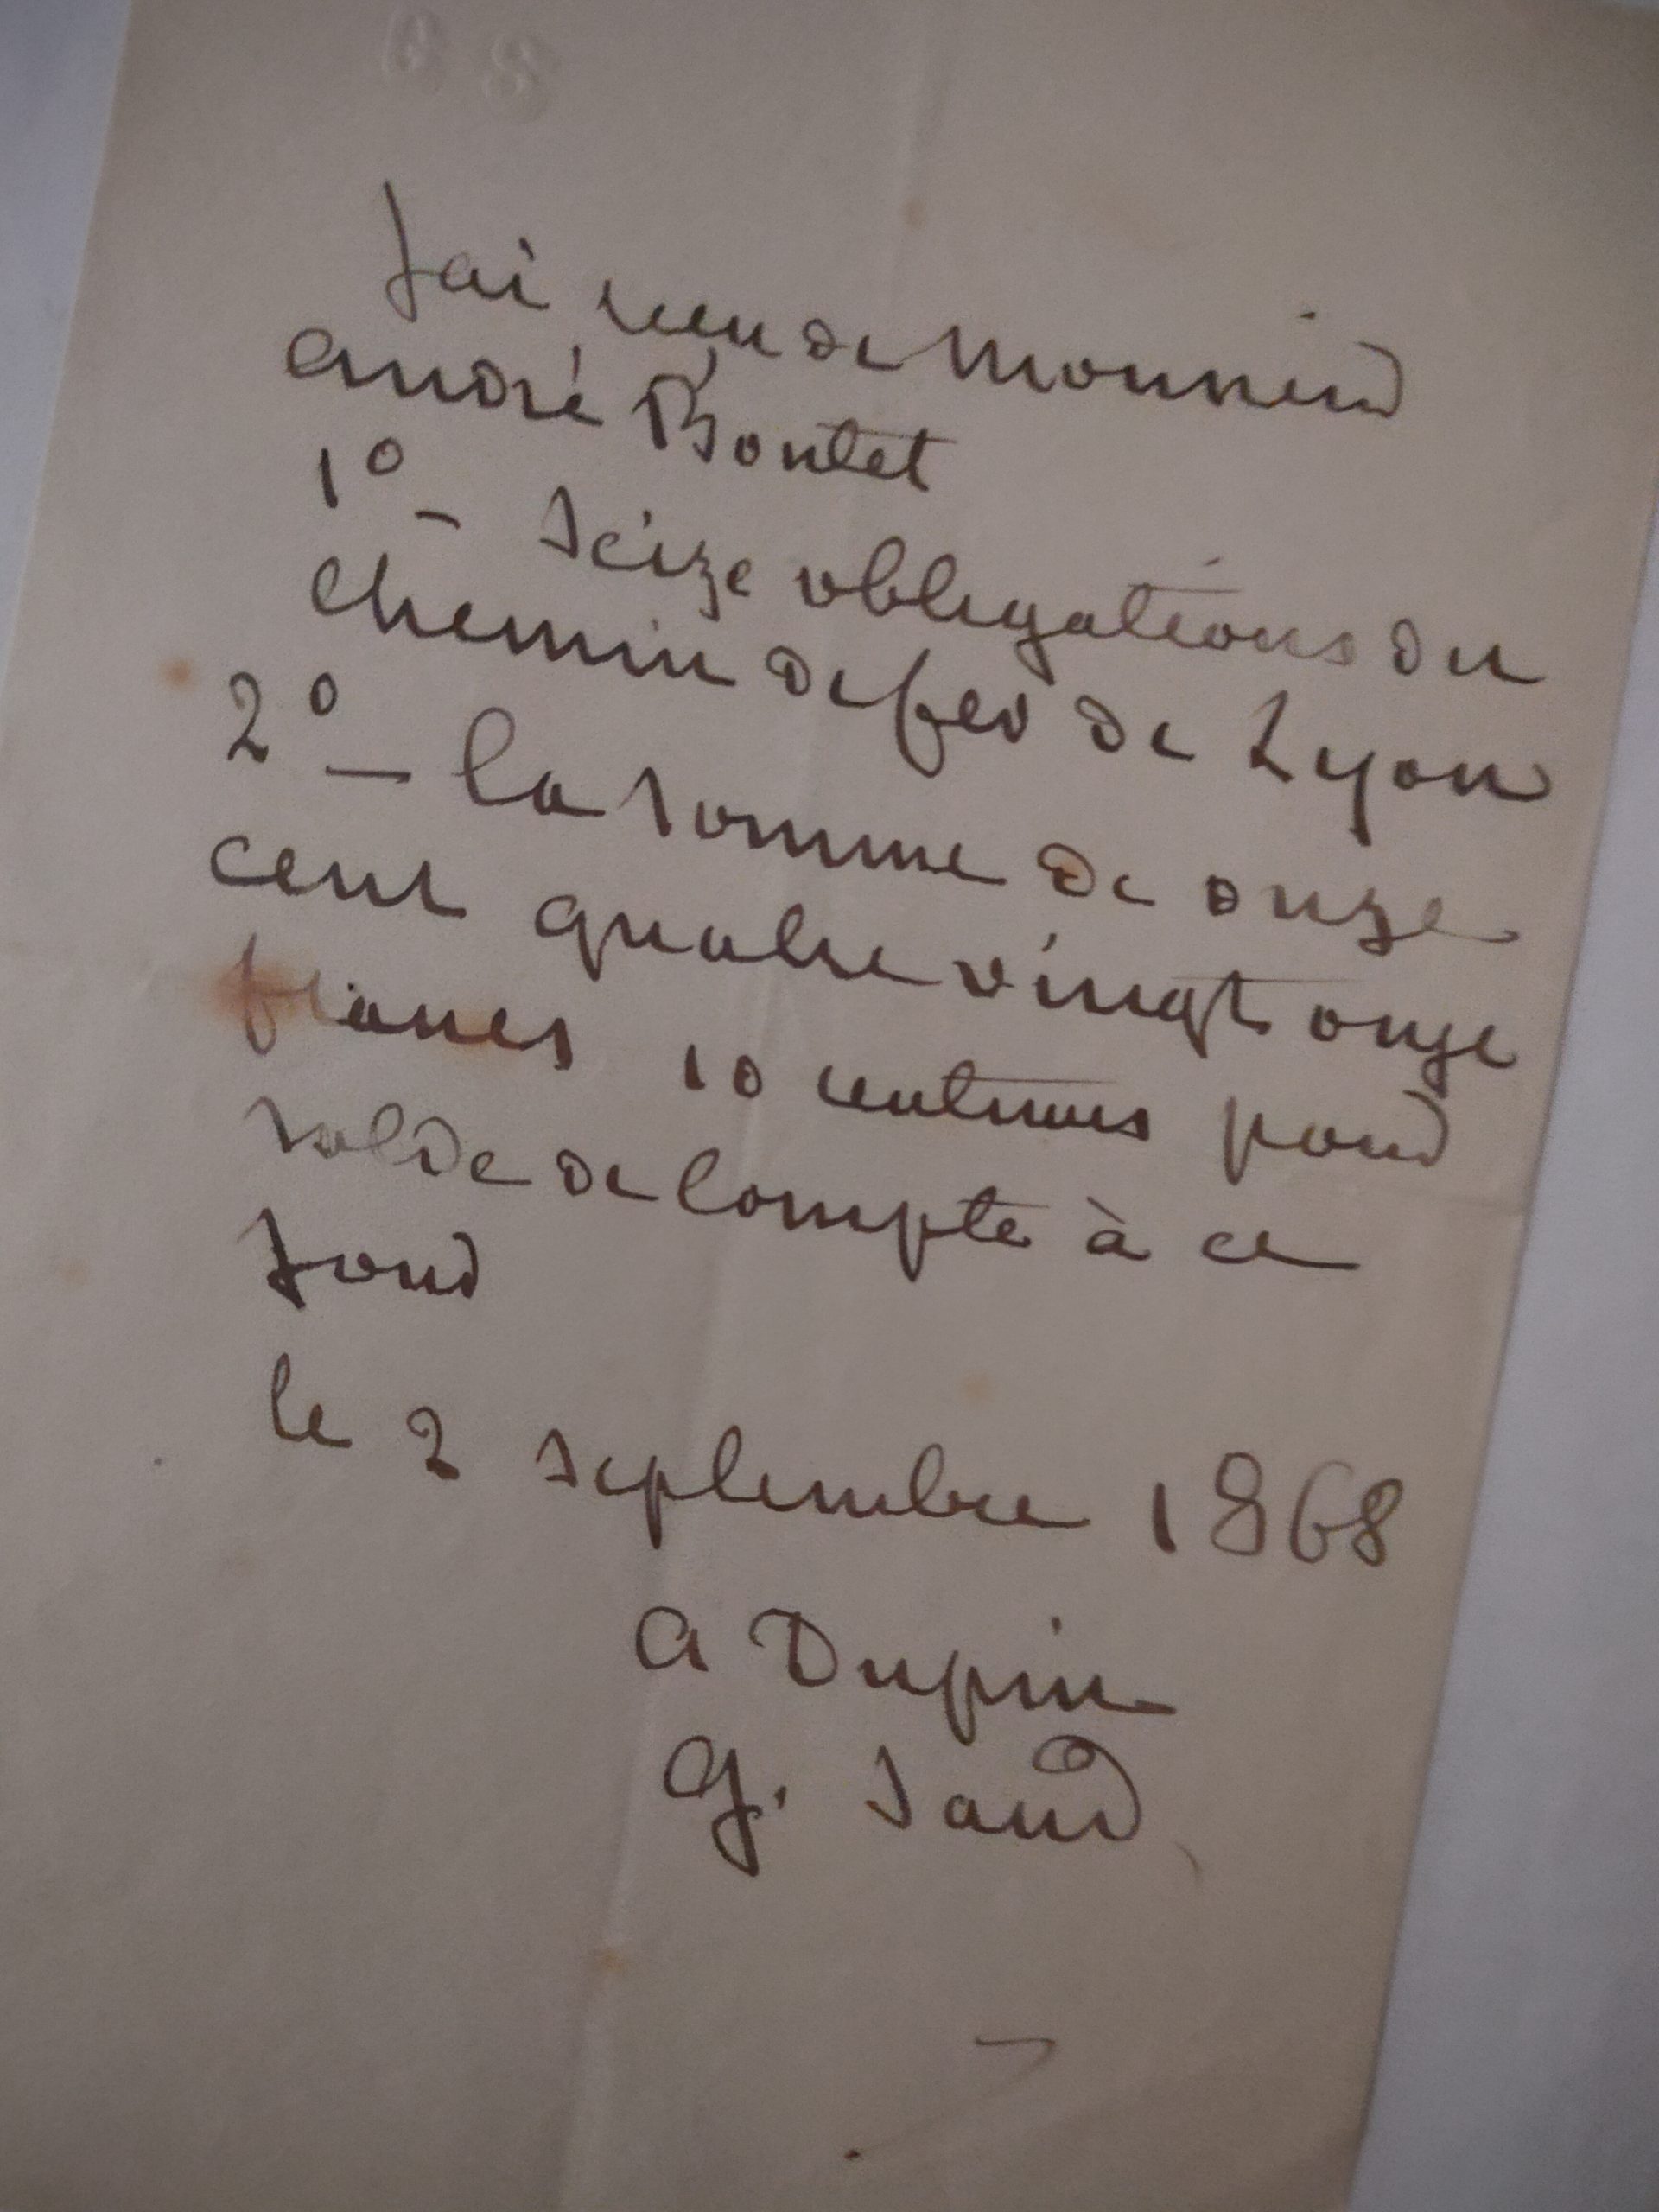 G S
J'ai reçu de Monsieur
André Boutet
1º – seize obligations du
chemin de fer de Lyon
2º – la somme de onze
cent quatre vingt onze
francs 10 centimes pour
solde de compte à ce
jour
le 2 septembre 1868
A Dupin
G. Sand